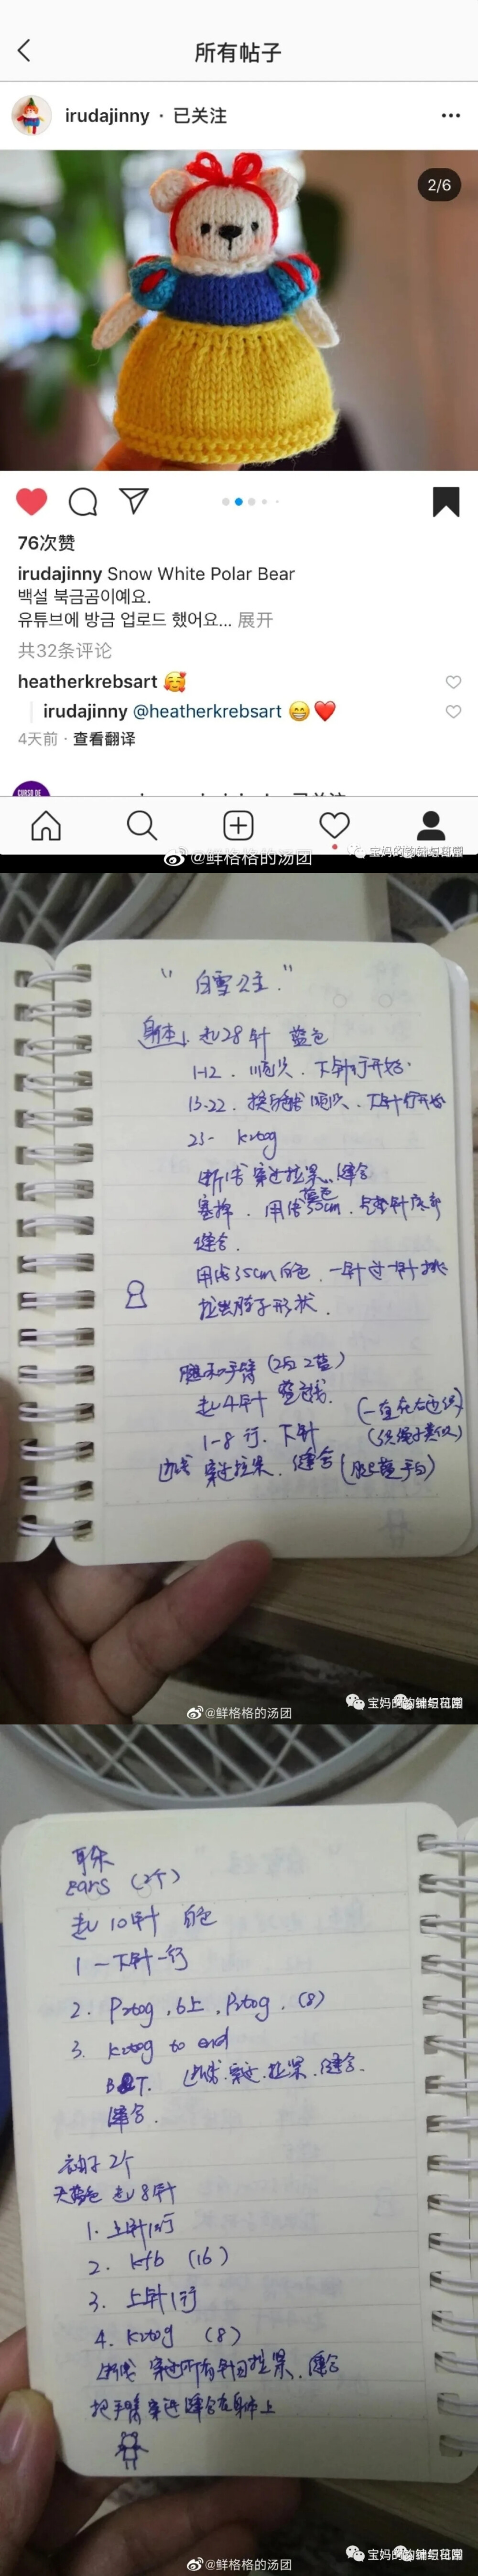 所有帖子
irudajinny · 已关注
2/6
76次赞
irudajinny Snow White Polar Bear
백설 북금곰이예요.
유튜브에 방금 업로드 했어요... 展开
共32条评论
heatherkrebsart 🥰
irudajinny @heatherkrebsart 😁❤️
4天前 · 查看翻译
已关注
@鲜格格的汤团
"白雪公主."
身体 1. 起28针 蓝色
1-12. 下针行开始.
13-22. 换 下针行开始
23- k2tog
断线 穿过拉紧. 缝合
蓝色
塞棉. 用线35cm. 底部
缝合.
用线35cm 白色. 一针过一针挑
拉出脖子形状.
腿和手臂 (2白 2蓝)
起4针 蓝线.
1-8行. 下针
断线 穿过拉紧. 缝合 (腿蓝 手白)
@鲜格格的汤团
耳朵
ears (2个)
起10针 白色
1 一下针一行
2. P2tog, 6上, P2tog. (8)
3. k2tog to end
断线. 穿过. 拉紧. 缝合.
缝合.
袖子 2个
天蓝色 起8针
1. 上针1行
2. kfb (16)
3. 上针1行
4. k2tog (8)
断线 穿过所有针目拉紧. 缝合
把手臂穿进 缝合在身体上
@鲜格格的汤团